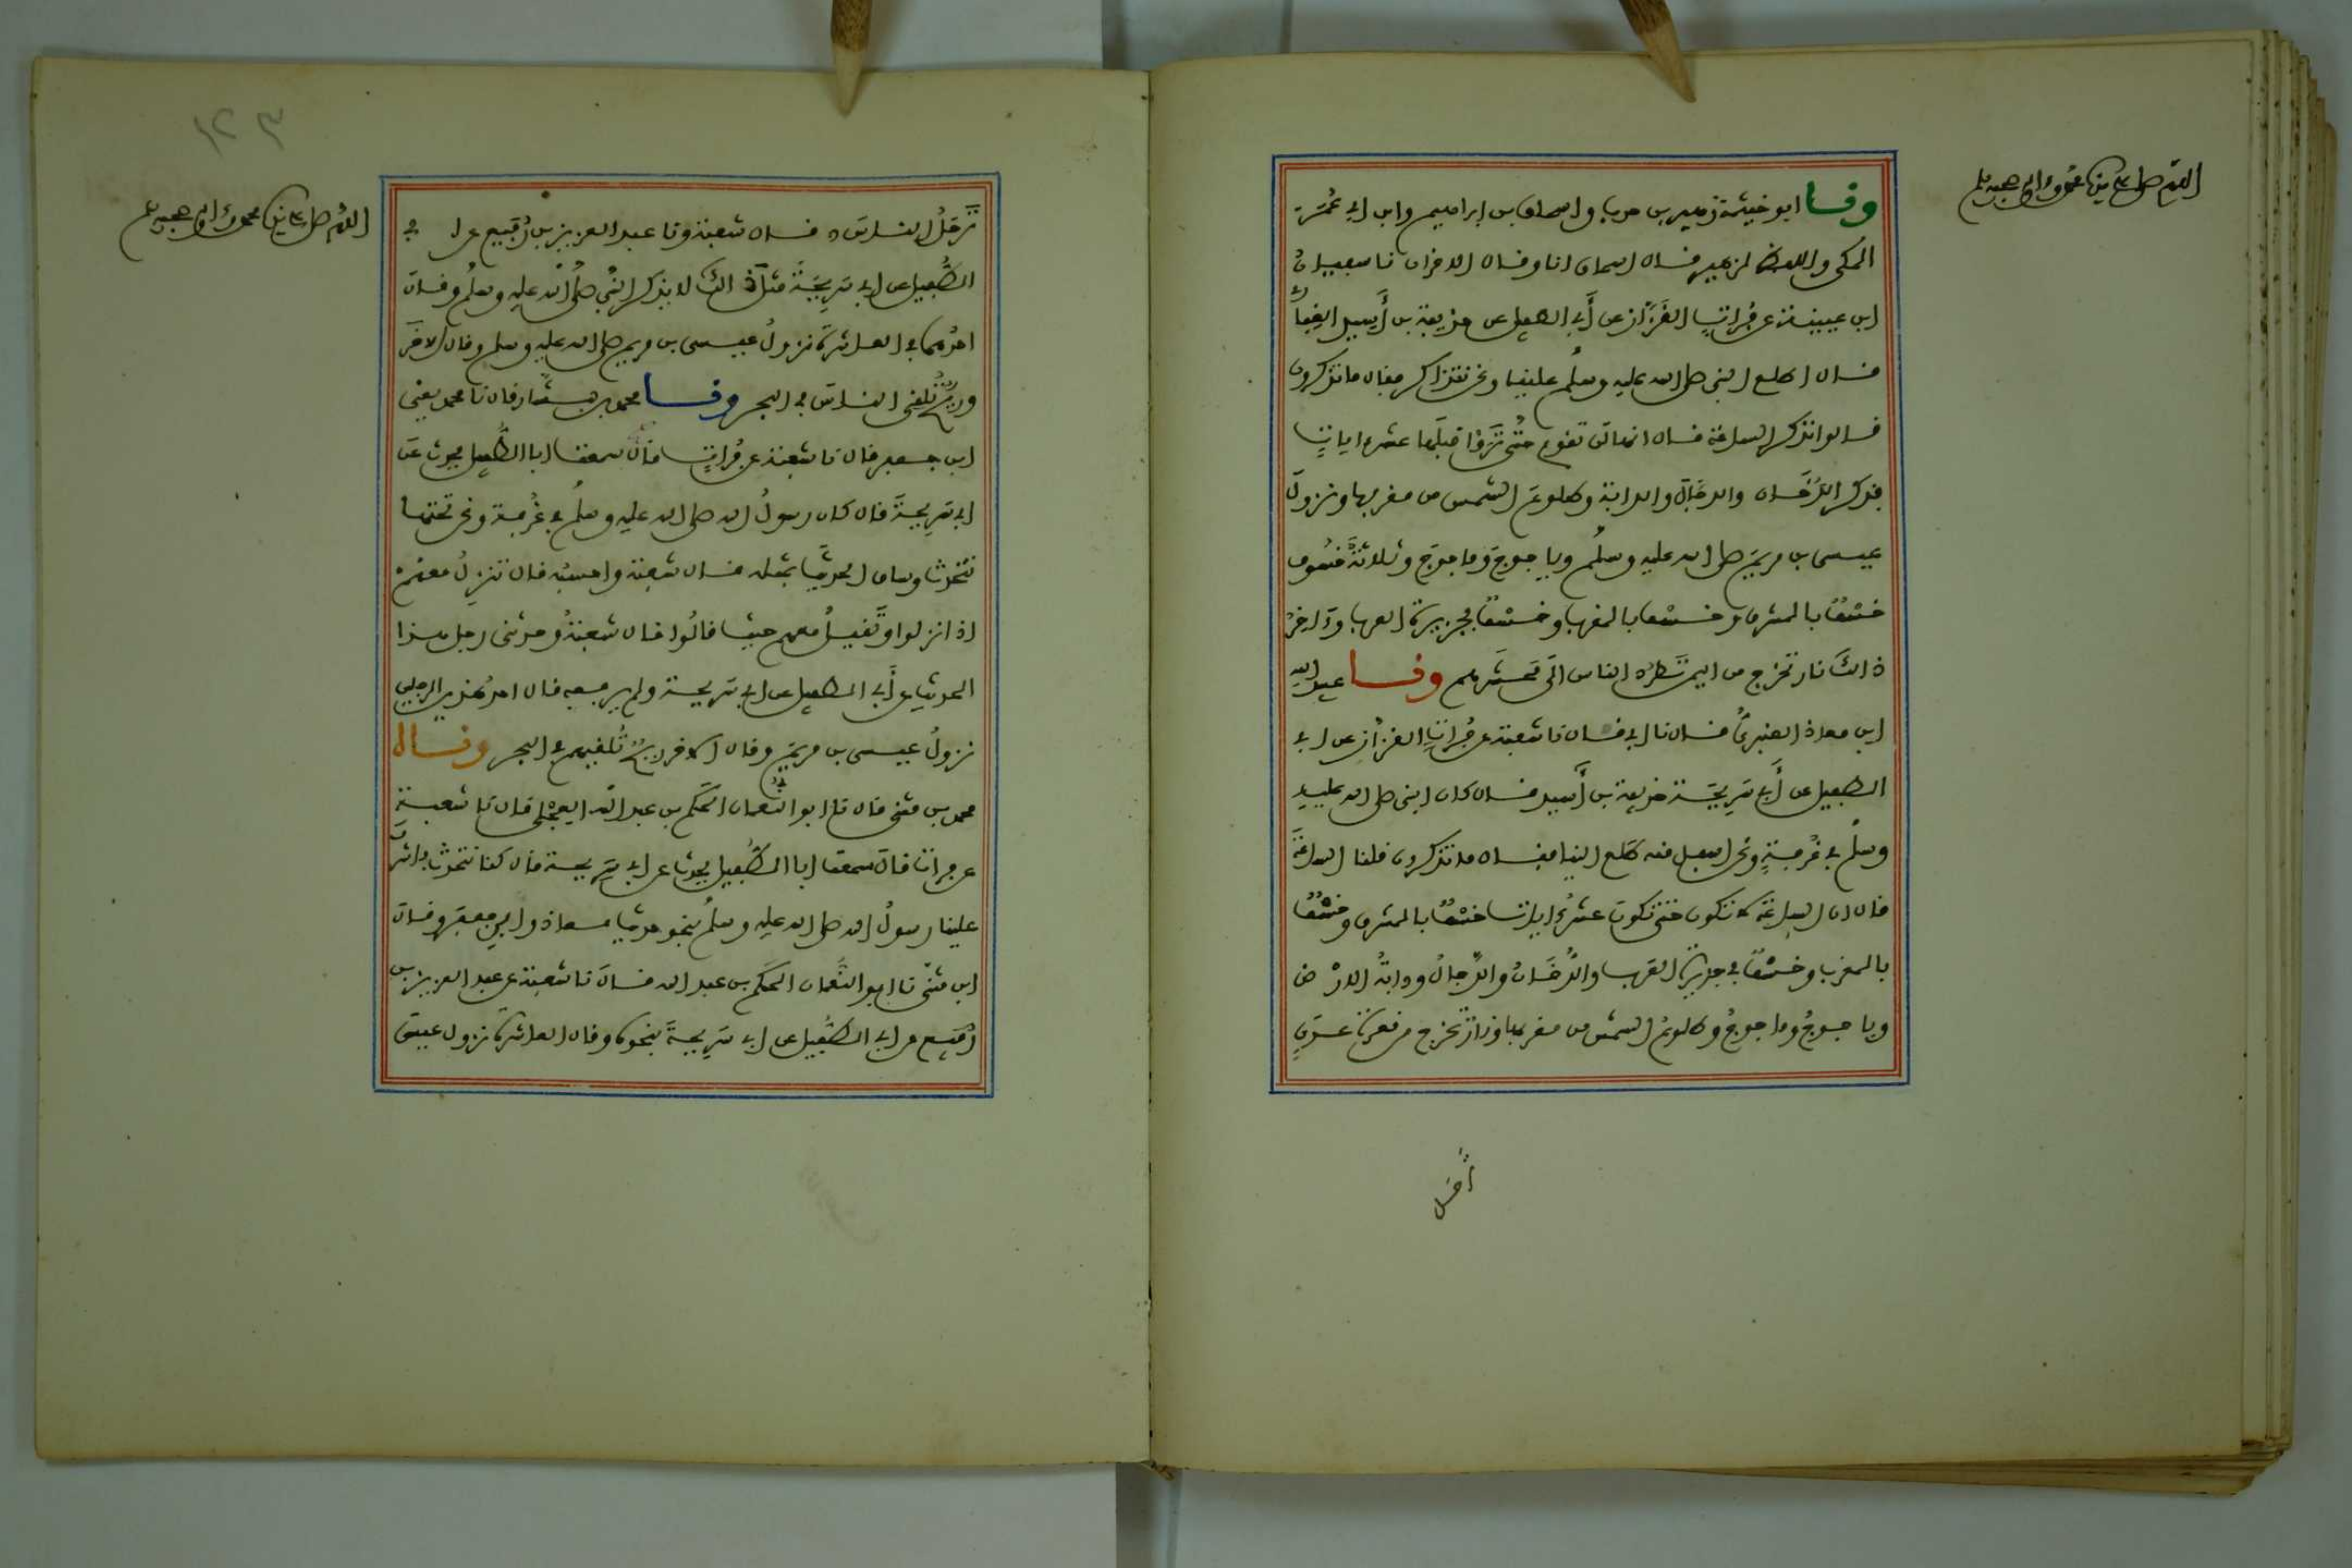 اللهم صل على سيدنا محمد وءاله وصحبه وسلم
وقال ابو خيثمة زهير بن حرب واسحاق بن ابراهيم وابن ابي عُمَرَ
المكي واللفظ لزهير قال اسحاق انا وقال الاخران نا سفيان
ابن عيينة عن فُرات القَزَّاز عن أبي الطفيل عن حذيفة بن أَسِيد الغِفَا
قال اطلع النبي صلى الله عليه وسلم علينا ونحن نتذاكر فقال ما تذكرون
قالوا نذكر الساعة قال انها لن تقوم حتى تَرَوْا قبلَها عشر ايات
فذكر الدُّخَان والدجّالَ والدابة وطلوعَ الشمس من مغربها ونزولَ
عيسى بن مريَم صلى الله عليه وسلم وياجوجَ وماجوجَ وثلاثةَ خُسُوف
خَسْفٌ بالمشرق وخسف بالمغرب وخَسْفٌ بجزيرة العرب وءاخِرُ
ذالكَ نار تخرج من اليمن تَطرُد الناس الَى مَحْشَرهم وقال عبيد الله
ابن معاذ العنبريُّ قال نا ابي قال نا شعبة عن فُراتٍ القزاز عن ابي
الطفيل عن أبي سَرِيحَة حذيفة بن أَسِيد قال كان النبي صلى الله عليه
وسلم في غُرفةٍ ونحن اسفل منه فاطلع الينا فقال ما تذكرون قلنا الساعَةَ
قال ان الساعَةَ لا تكون حتى تكونَ عشرُ ايات خَسْفٌ بالمشرق وخَسْفٌ
بالمغرب وخَسْفٌ في جزيرة العرب والدُّخَانُ والدَّجالُ ودابةُ الارْض
وياجوجُ وماجوجُ وطلوعُ الشمس من مغربها ونارٌ تخرج من قعرة عدَنٍ
تَرْحَلُ
اللهم صل على سيدنا محمد وءاله وصحبه وسلم
١٢٣
تَرْحَلُ الناسَ قال شعبة ونا عبد العزيز بن رُفَيع عن ابي
الطُّفيل عن ابي سَرِيحَةَ مثلَ ذالك لا يذكر النبيَّ صلَّى الله عليه وسلم وقال
احدُهما في العاشرة نزولُ عيسى بن مريم صلى الله عليه وسلم وقال الاخَر
وريحٌ تُلقي الناسَ في البحر وقال محمد بن بشّار قال نا محمد يعني
ابن جعفر قال نا شعبة عن فُراتٍ قال سمعت ابا الطُّفيل يحدث عن
ابي سَرِيحةَ قال كان رسولُ الله صلى الله عليه وسلم في غُرفة ونحن تحتها
نتحدث وساق الحديثَ بمثله قال شعبة واحسبُه قال تنزِلُ معهم
اذا نزلوا وتَقيلُ معهم حيث قالُوا قال شعبةُ وحدثني رجل هذا
الحديث عن أبي الطفيل عن ابي سَرِيحة ولم يرفعه قال احدُ هذين الرجلين
نزولُ عيسى بن مريَم وقال الاخر ريحٌ تُلقيهم في البحر وقال
محمد بن مثنى قال نا ابو النعمان الحَكَم بن عبد الله العِجْلي قال نا شعبة
عن فرات قال سمعت ابا الطُّفيل يحدث عن ابي سَرِيحة قال كنا نتحدث فاشرَف
علينا رسولُ الله صلى الله عليه وسلم بنحو حديث معاذ وابن جعفر وقال
ابن مثنَّى نا ابو النُّعمان الحَكَم بن عبد الله قال نا شعبة عن عبد العزيز بن
رُفَيع عن ابي الطُّفيل عن ابي سَرِيحةَ بنحوه وقال العاشرة نزول عيسى